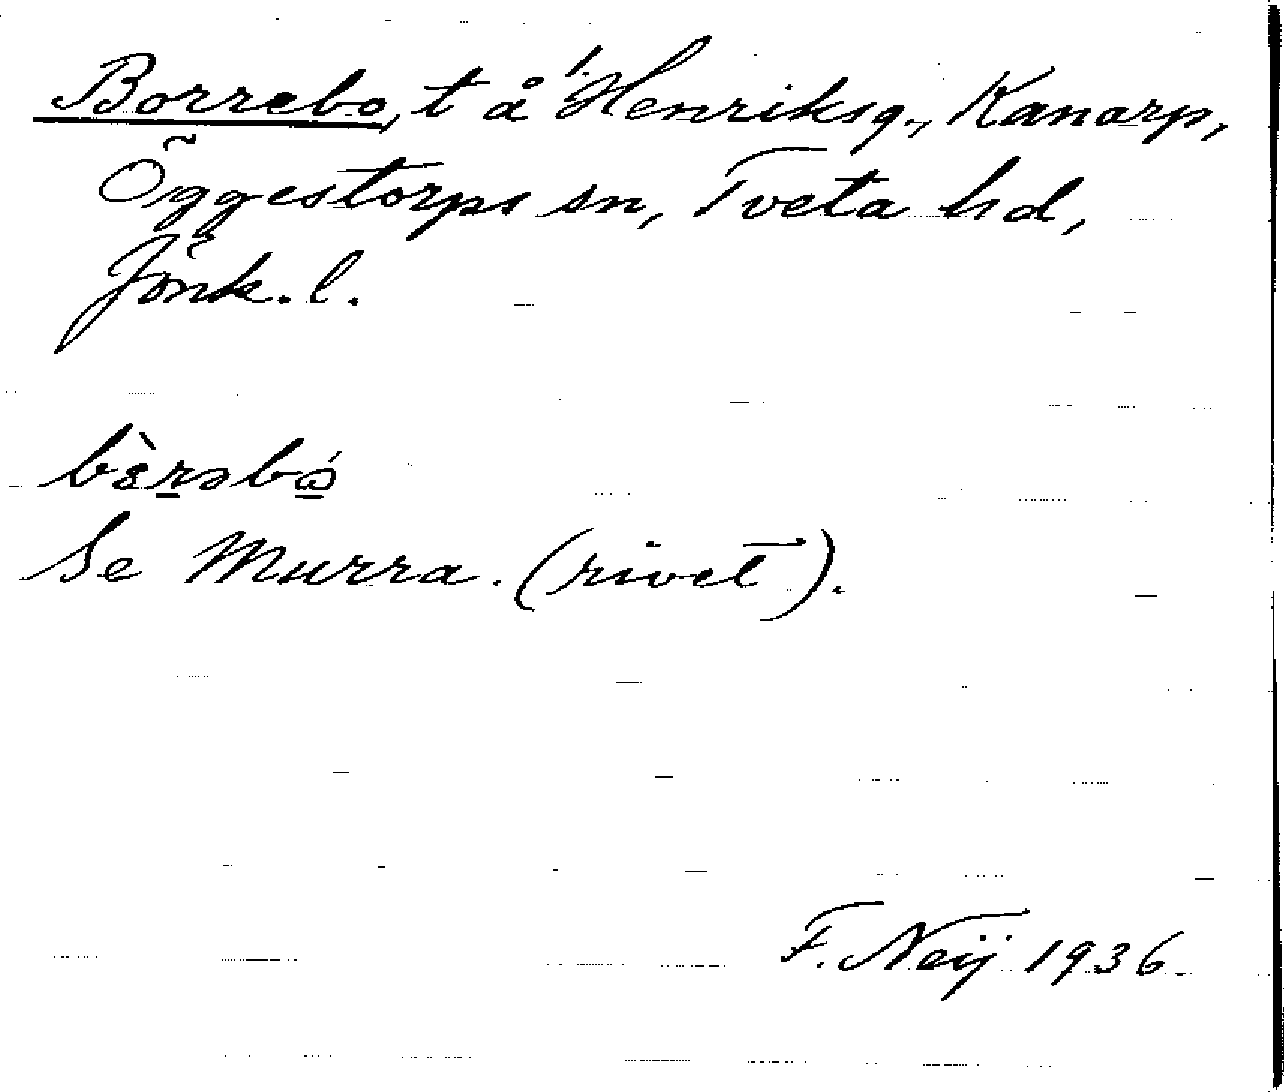 Borrebo, t å Henriksg., Kanarp,
Öggestorps sn, Tveta hd,
Jönk. l.
bɛ̀rəbó
Se Murra. (rivet).
F. Neij 1936